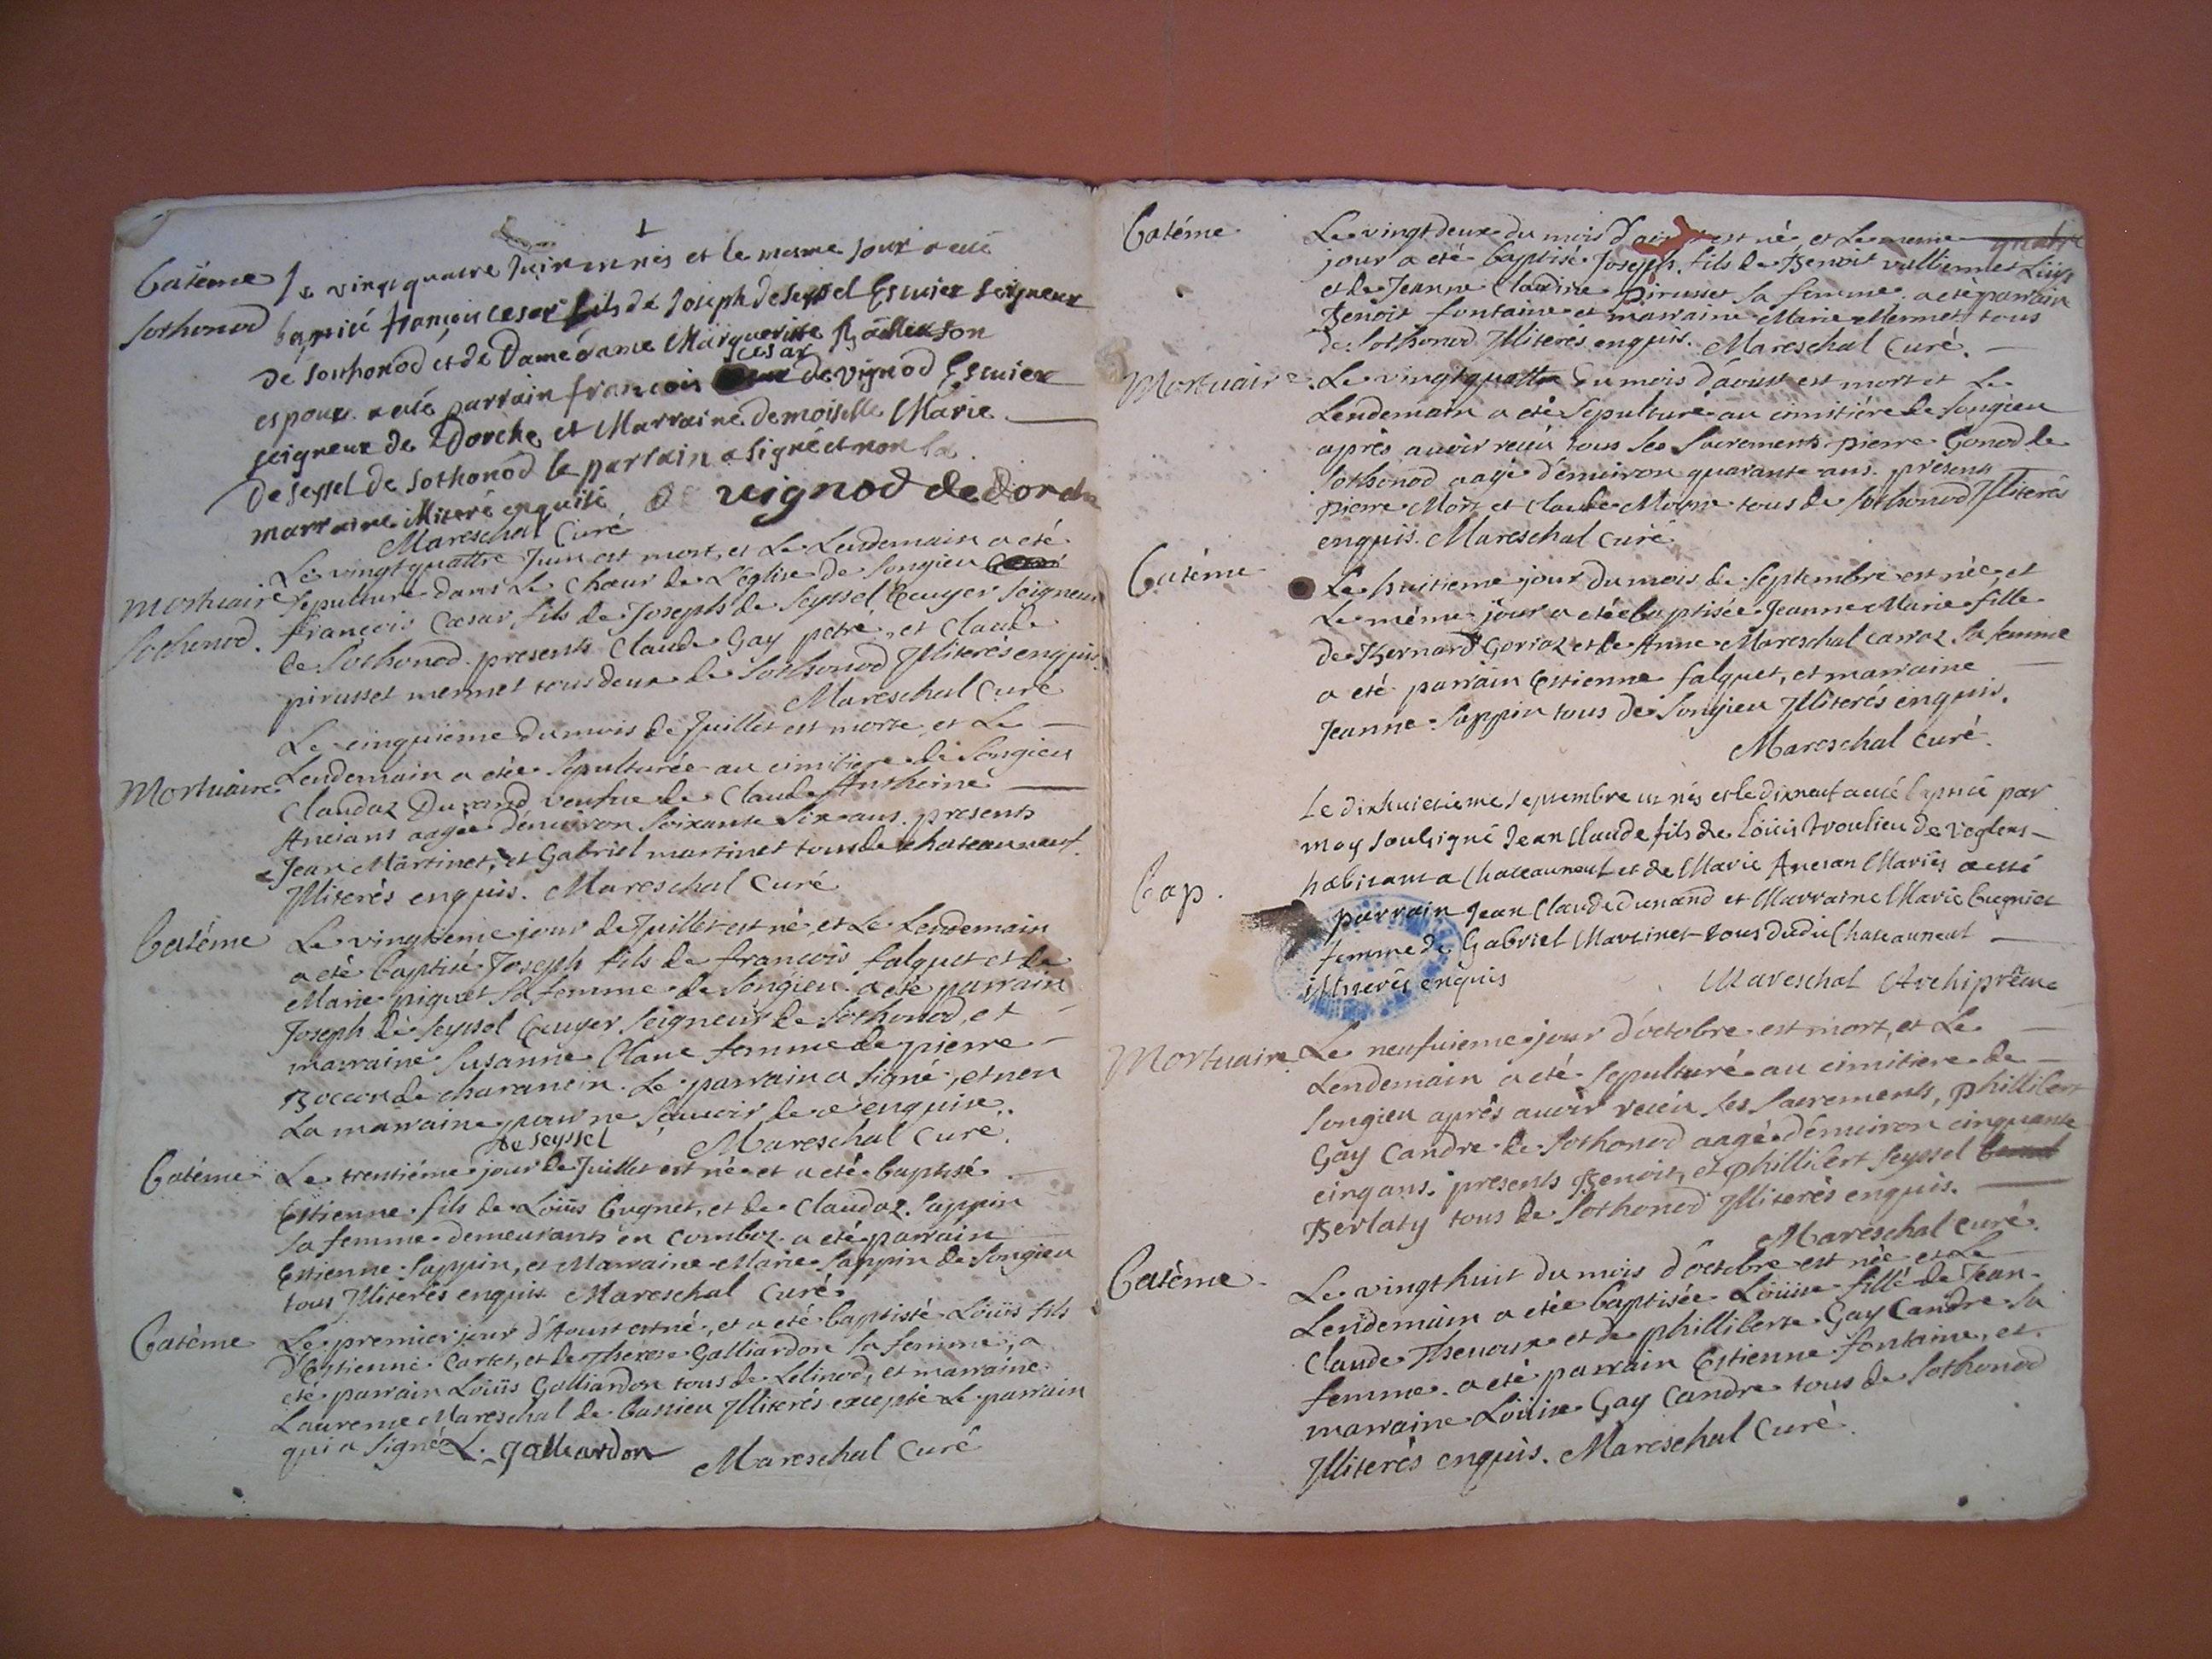 Batéme
Sothonod
Le vingt quatre Juin est nés et le mesme jour a esté
baptisé françois cesar fils de Joseph de Seyssel Escuier seigneur
de Sothonod et de Dame dame Marguerite
espoux a esté parrain françois cesar de vignod Escuier
seigneur de Dorche et Marraine demoiselle Marie
de Seyssel de Sothonod le parrain a signé et non la
marraine illiteré enquise de vignod de dorche
Mareschal Curé
Mortuaire
Sothonod.
Le vingt quattre Juin est mort, et Le Lendemain a eté
sepulturé dans Le Chœur de L'église de Songieu
françois Cæsar, fils de Joseph de Seyssel Ecuyer Seigneur
de Sothonod. presents Claude Gay petré, et Claude
pirusset mermet tous deux de Sothonod Illiterés enquis.
Mareschal Curé
Mortuaire
Le cinquième du mois de Juillet est morte, et Le
Lendemain a etée sepulturée au cimitière de Songieu
Claudaz Durand veufue de Claude Antheine
Ancians aagée d'enuiron soixante six ans. presents
Jean Martinet, et Gabriel martinet tous de chateauneuf
Illiterés enquis. Mareschal Curé
Batéme
Le vingtieme jour de Juillet est né, et Le Lendemain
a eté baptisé Joseph fils de francois falquet et de
Marie piquet sa femme de Songieu. a eté parrain
Joseph de Seyssel Ecuyer Seigneur de Sothonod, et
marraine Susanne Clane femme de pierre
Boccon de charancin. Le parrain a signé, et non
La marraine pour ne sçauoir de ce enquise.
de seyssel Mareschal Curé.
Batéme
Le trentiéme jour de Juillet est né et a eté baptisé
Estienne fils de Loüis Gugnet, et de Claudaz Sappin
sa femme demeurants en comboz. a eté parrain
Estienne Sappin, et Marraine Marie Sappin de Songieu
tous Illiterés enquis Mareschal Curé.
Batéme
Le premier jour d'Aoust est né, et a eté baptisé Loüis fils
d'Estienne Cartet, et de Therese Galliardon sa femme, a
eté parrain Loüis Galliardon tous de Lilinod, et marraine
Laurence Mareschal de bassieu Illiterés excepté Le parrain
qui a signé L. galliardon Mareschal Curé
Batéme
Le vingt deux du mois d'aoust est né et Le meme
jour a eté baptisé Joseph fils de Benoit vulliermet
et de Jeanne Claudine pirusset sa femme. a eté parrain
Benoit fontaine et marraine Marie Mermet tous
de Sothonod Illiterés enquis. Mareschal Curé.
Mortuaire
Le vingt quattre du mois d'aoust est mort et Le
Lendemain a eté sepulturé au cimitière de Songieu
après auoir receu tous ses sacrements pierre Gonod de
Sothonod aagé d'enuiron quarante ans. présents
pierre Mort et Claude Moine tous de Sothonod Illiterés
enquis. Mareschal Curé
Batéme
Le huitieme jour du mois de Septembre est née, et
Le méme jour a etée baptisée Jeanne Marie fille
de Bernard Gorraz et de Anne Mareschal carraz sa femme
a eté parrain Estienne falquet, et marraine
Jeanne Sappin tous de Songieu Illiterés enquis.
Mareschal Curé.
Bap.
Le dixhuictieme septembre est nés et le dixneuf a esté baptisé par
moy soubsigné Jean Claude fils de Loüis troulieu de veglens
habitant a Chateauneuf et de Marie Ancian Mariés a esté
parrain Jean Claude dunand et Marraine Marie bugniet
femme de Gabriel Martinet tous dudit Chateauneuf
illiterés enquis Mareschal Archiprêtre
Mortuaire
Le neufuieme jour d'octobre est mort, et Le
Lendemain a eté sepulturé au cimitiere de
Songieu après auoir receu ses sacrements, phillibert
Gay Candre de Sothonod aagé d'enuiron cinquante
cinq ans. presents Benoit, et phillibert Seyssel
Berlaty tous de Sothonod Illiterés enquis.
Mareschal Curé.
Batéme
Le vingt huit du mois d'octobre est née et Le
Lendemain a etée baptisée Loüise fille de Jean
Claude Thenoux et de philliberte Gay Candre sa
femme. a eté parrain Estienne fontaine, et
marraine Loüise Gay Candre tous de Sothonod
Illiterés enquis. Mareschal Curé.